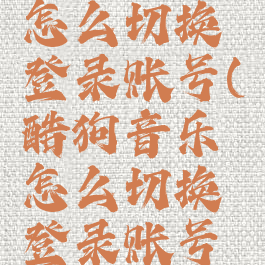 怎么切换
登录账号(
酷狗音乐
怎么切换
登录账号